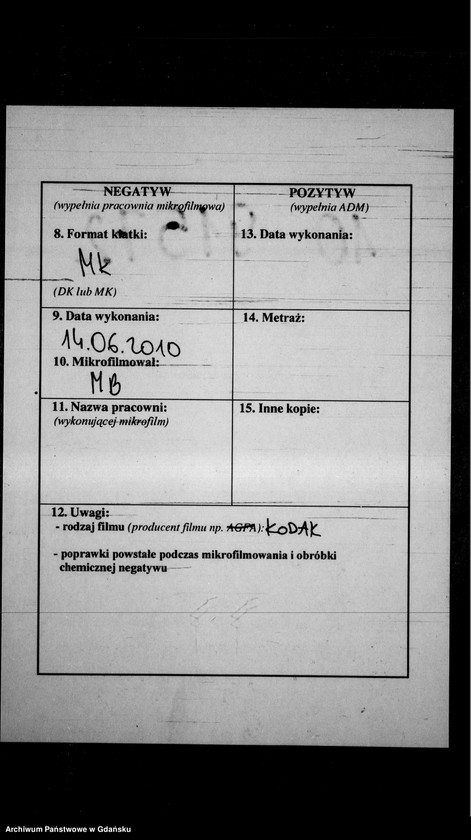 NEGATYW
(wypełnia pracownia mikrofilmowa)
8. Format klatki:
MK
(DK lub MK)
9. Data wykonania:
14.06.2010
10. Mikrofilmował:
MB
11. Nazwa pracowni:
(wykonującej mikrofilm)
POZYTYW
(wypełnia ADM)
13. Data wykonania:
14. Metraż:
15. Inne kopie:
12. Uwagi:
- rodzaj filmu (producent filmu np. AGFA): KODAK
- poprawki powstałe podczas mikrofilmowania i obróbki
chemicznej negatywu
Archiwum Państwowe w Gdańsku